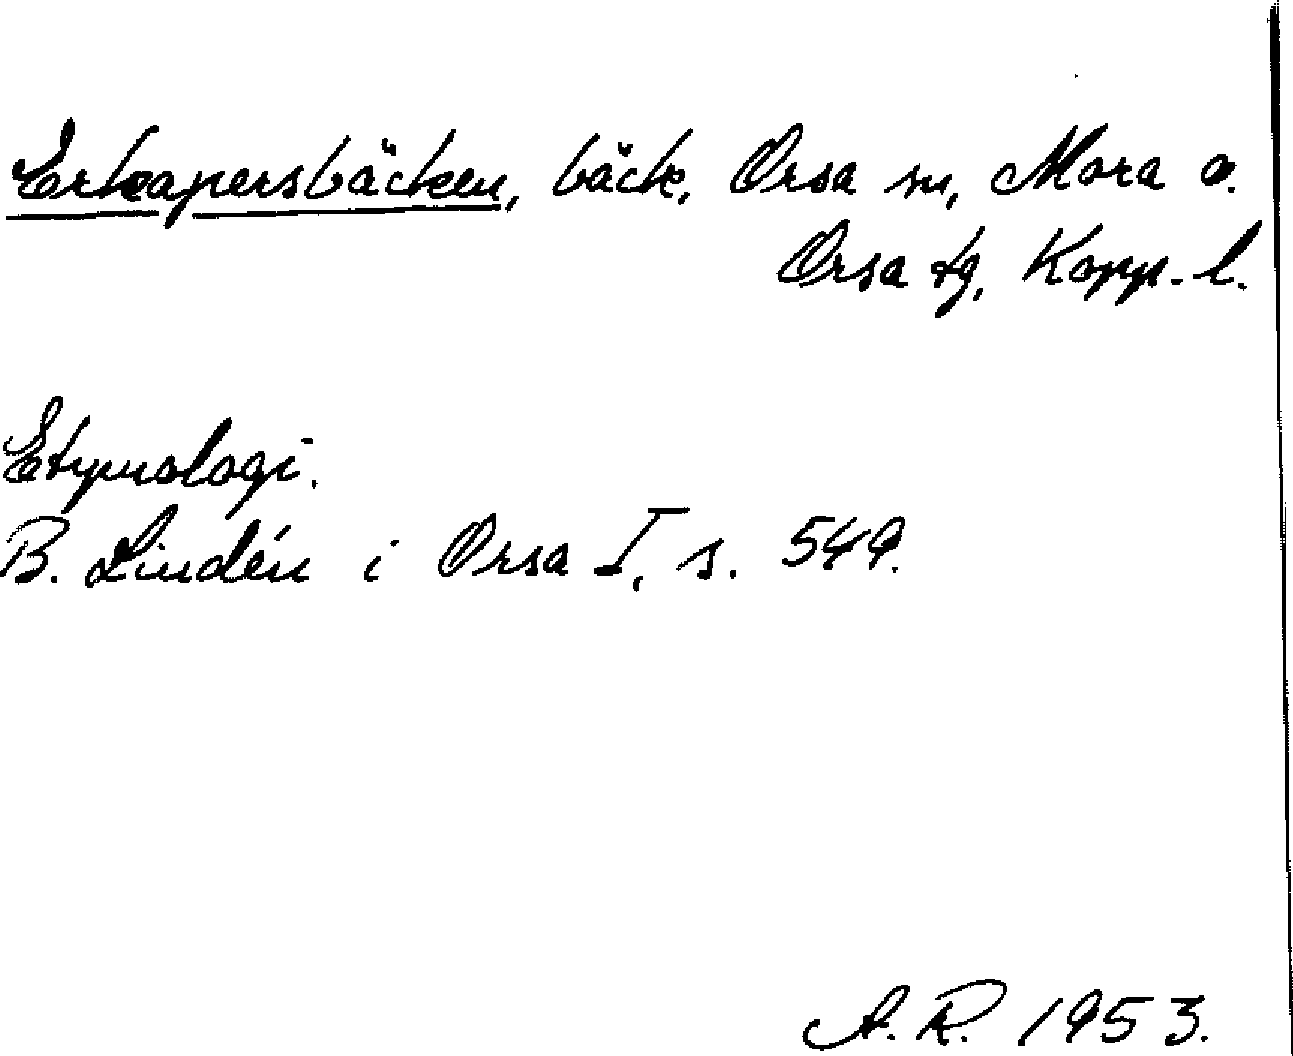 Erkapersbäcken, bäck, Orsa sn, Mora o.
Orsa tg, Kopp. l.
Etymologi.
B. Lindén i Orsa I, s. 549.
A. R. 1953.